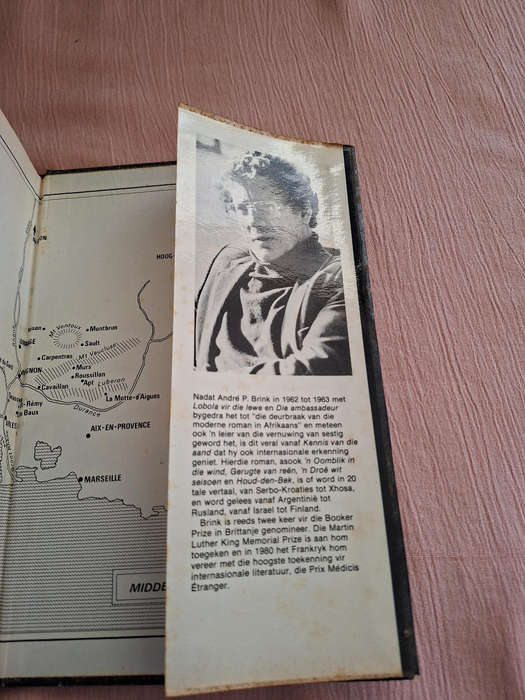 HOOG
Mt Ventoux
Montbrun
Sault
Carpentras
Mt Vaucluse
Murs
Roussillon
Cavaillon
Apt
Luberon
La Motte-d'Aigues
Durance
Baux
AIX-EN-PROVENCE
MARSEILLE
Nadat André P. Brink in 1962 tot 1963 met
Lobola vir die lewe en Die ambassadeur
bygedra het tot "die deurbraak van die
moderne roman in Afrikaans" en meteen
ook 'n leier van die vernuwing van sestig
geword het, is dit veral vanaf Kennis van die
aand dat hy ook internasionale erkenning
geniet. Hierdie roman, asook 'n Oomblik in
die wind, Gerugte van reën, 'n Droë wit
seisoen en Houd-den-Bek, is of word in 20
tale vertaal, van Serbo-Kroaties tot Xhosa,
en word gelees vanaf Argentinië tot
Rusland, vanaf Israel tot Finland.
Brink is reeds twee keer vir die Booker
Prize in Brittanje genomineer. Die Martin
Luther King Memorial Prize is aan hom
toegeken en in 1980 het Frankryk hom
vereer met die hoogste toekenning vir
internasionale literatuur, die Prix Médicis
Étranger.